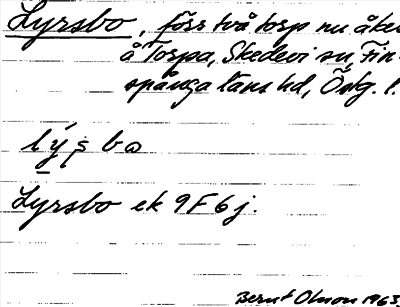 Lyrsbo, förr två torp nu åker
å Torpa, Skedevi sn, Fin-
spånga läns hd, Ög. l.
Lyrsbo ek 9F6j.
Bernt Olsson 1963.